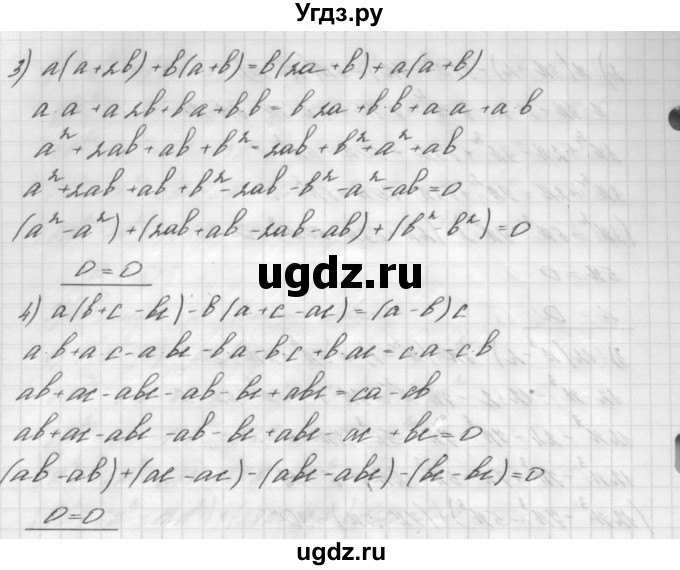 Угдз.ру
3) a(a+2b)+b(a+b)=b(2a+b)+a(a+b)
a·a+a2b+ba+b·b=b·2a+b·b+a·a+a·b
a²+2ab+ab+b²=2ab+b²+a²+ab
a²+2ab+ab+b²-2ab-b²-a²-ab=0
(a²-a²)+(2ab+ab-2ab-ab)+(b²-b²)=0
0=0
ugdz.ru
4) a(b+c-bc)-b(a+c-ac)=(a-b)c
a·b+a·c-abc-ba-b·c+b·ac=c·a-c·b
ab+ac-abc-ab-bc+abc=ca-cb
ab+ac-abc-ab-bc+abc-ac+bc=0
(ab-ab)+(ac-ac)-(abc-abc)-(bc-bc)=0
0=0
ugdz.ru
ugdz.ru